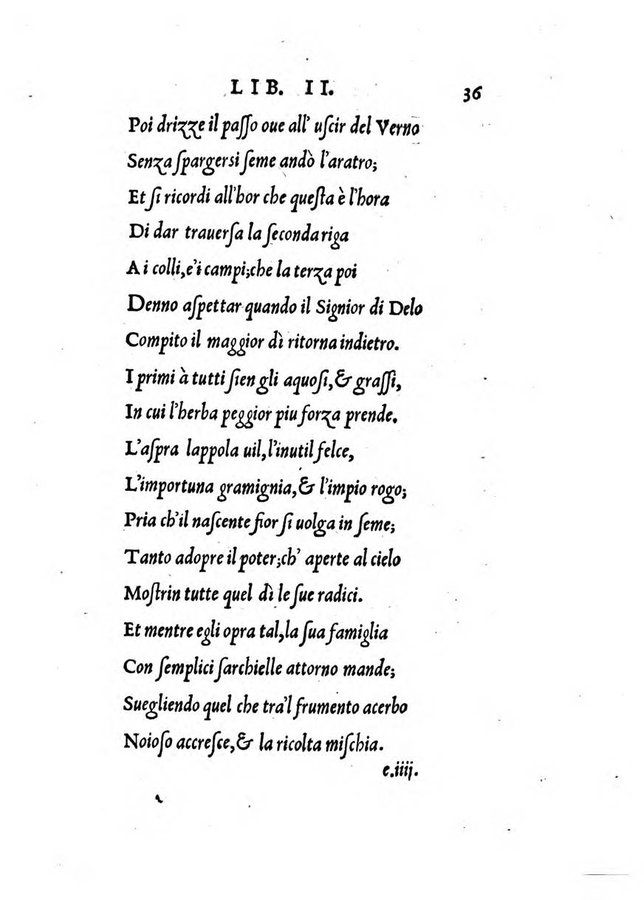 LIB. II. 36
Poi drizze il paſſo oue all' uſcir del Verno
Senza ſpargersi ſeme andò l'aratro;
Et ſi ricordi all'hor che queſta è l'hora
Di dar trauerſa la ſeconda riga
A i colli, e'i campi; che la terza poi
Denno aſpettar quando il Signior di Delo
Compito il maggior dì ritorna indietro.
I primi à tutti ſien gli aquoſi, & graſſi,
In cui l'herba peggior piu forza prende.
L'aſpra lappola uil, l'inutil felce,
L'importuna gramignia, & l'impio rogo;
Pria ch'il naſcente fior ſi uolga in ſeme;
Tanto adopre il poter; ch' aperte al cielo
Moſtrin tutte quel dì le ſue radici.
Et mentre egli opra tal, la ſua famiglia
Con ſemplici ſarchielle attorno mande;
Suegliendo quel che tra'l frumento acerbo
Noioſo accreſce, & la ricolta miſchia.
e.iiij.